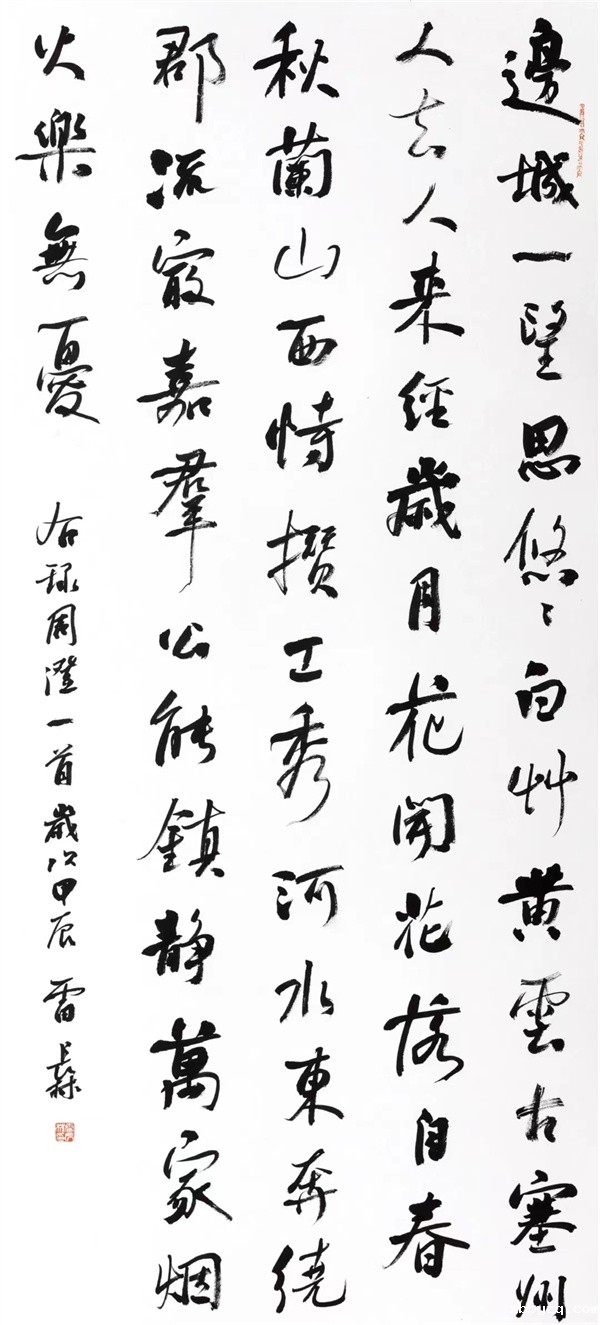 邊城一望思悠〻白艸黄雲古塞州
人去人来經歲月花開花落自春
秋蘭山西恃攢工秀河水東奔繞
郡流最嘉羣公能鎮静萬家烟
火樂無憂
右録周澄一首歲次甲辰 雷